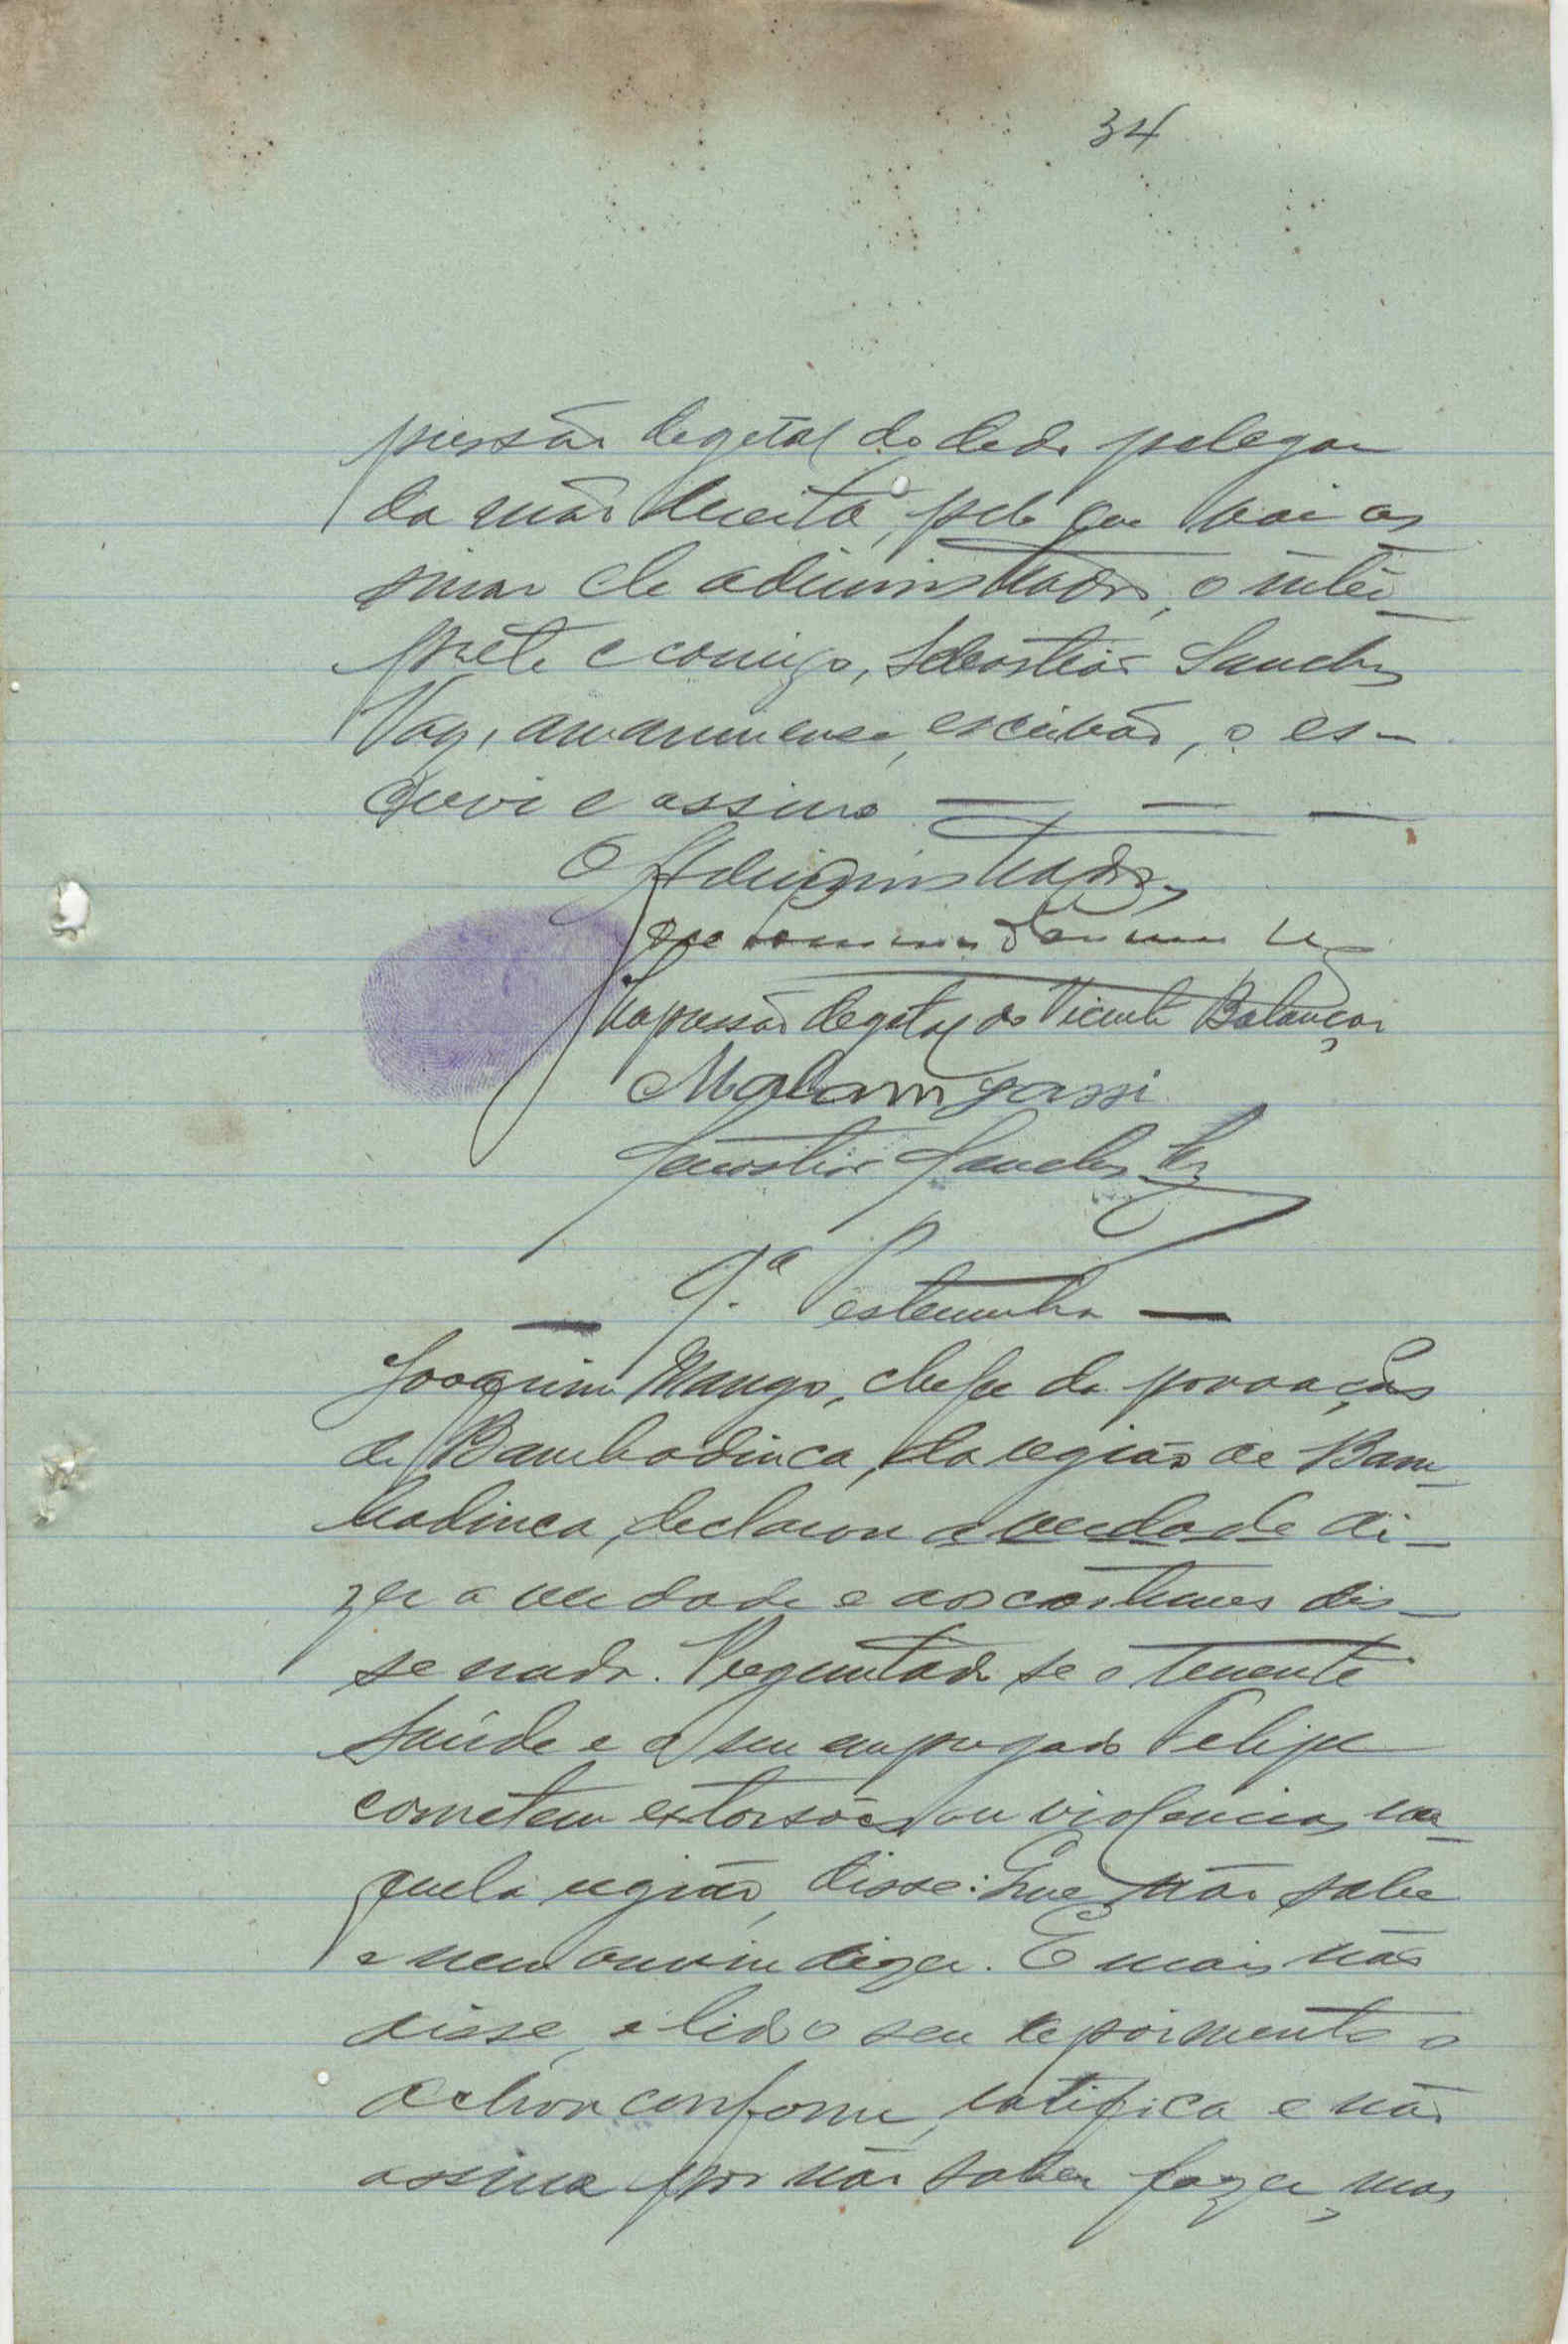 34
pressão degetal do dedo polegar
da mão direita, pelo que vai as
sinar ele administrador, o intér-
prete e comigo, Sebastião Sanches
Vaz, amanuense, escrivão, o es-
crevi e assino — — —
O Administrador,
Impressão degetal do Vicente Balançar
Malam gassi
Sebastião Sanches Vaz
— 9.ª Testemunha —
Joaquim Mango, chefe da povoação
de Bambadinca, da região de Bam-
badinca, declarou a verdade di-
zer a verdade e aos costumes dis-
se nada. Preguntado se o tenente
Saúde e o seu empregado Felipe
cometem extorsões ou violencias na-
quela região, disse: Que não sabe
e nem ouviu dizer. E mais não
disse, e lido o seu depoimento o
achou conforme, ratifica e não
assina por não saber fazer, mas